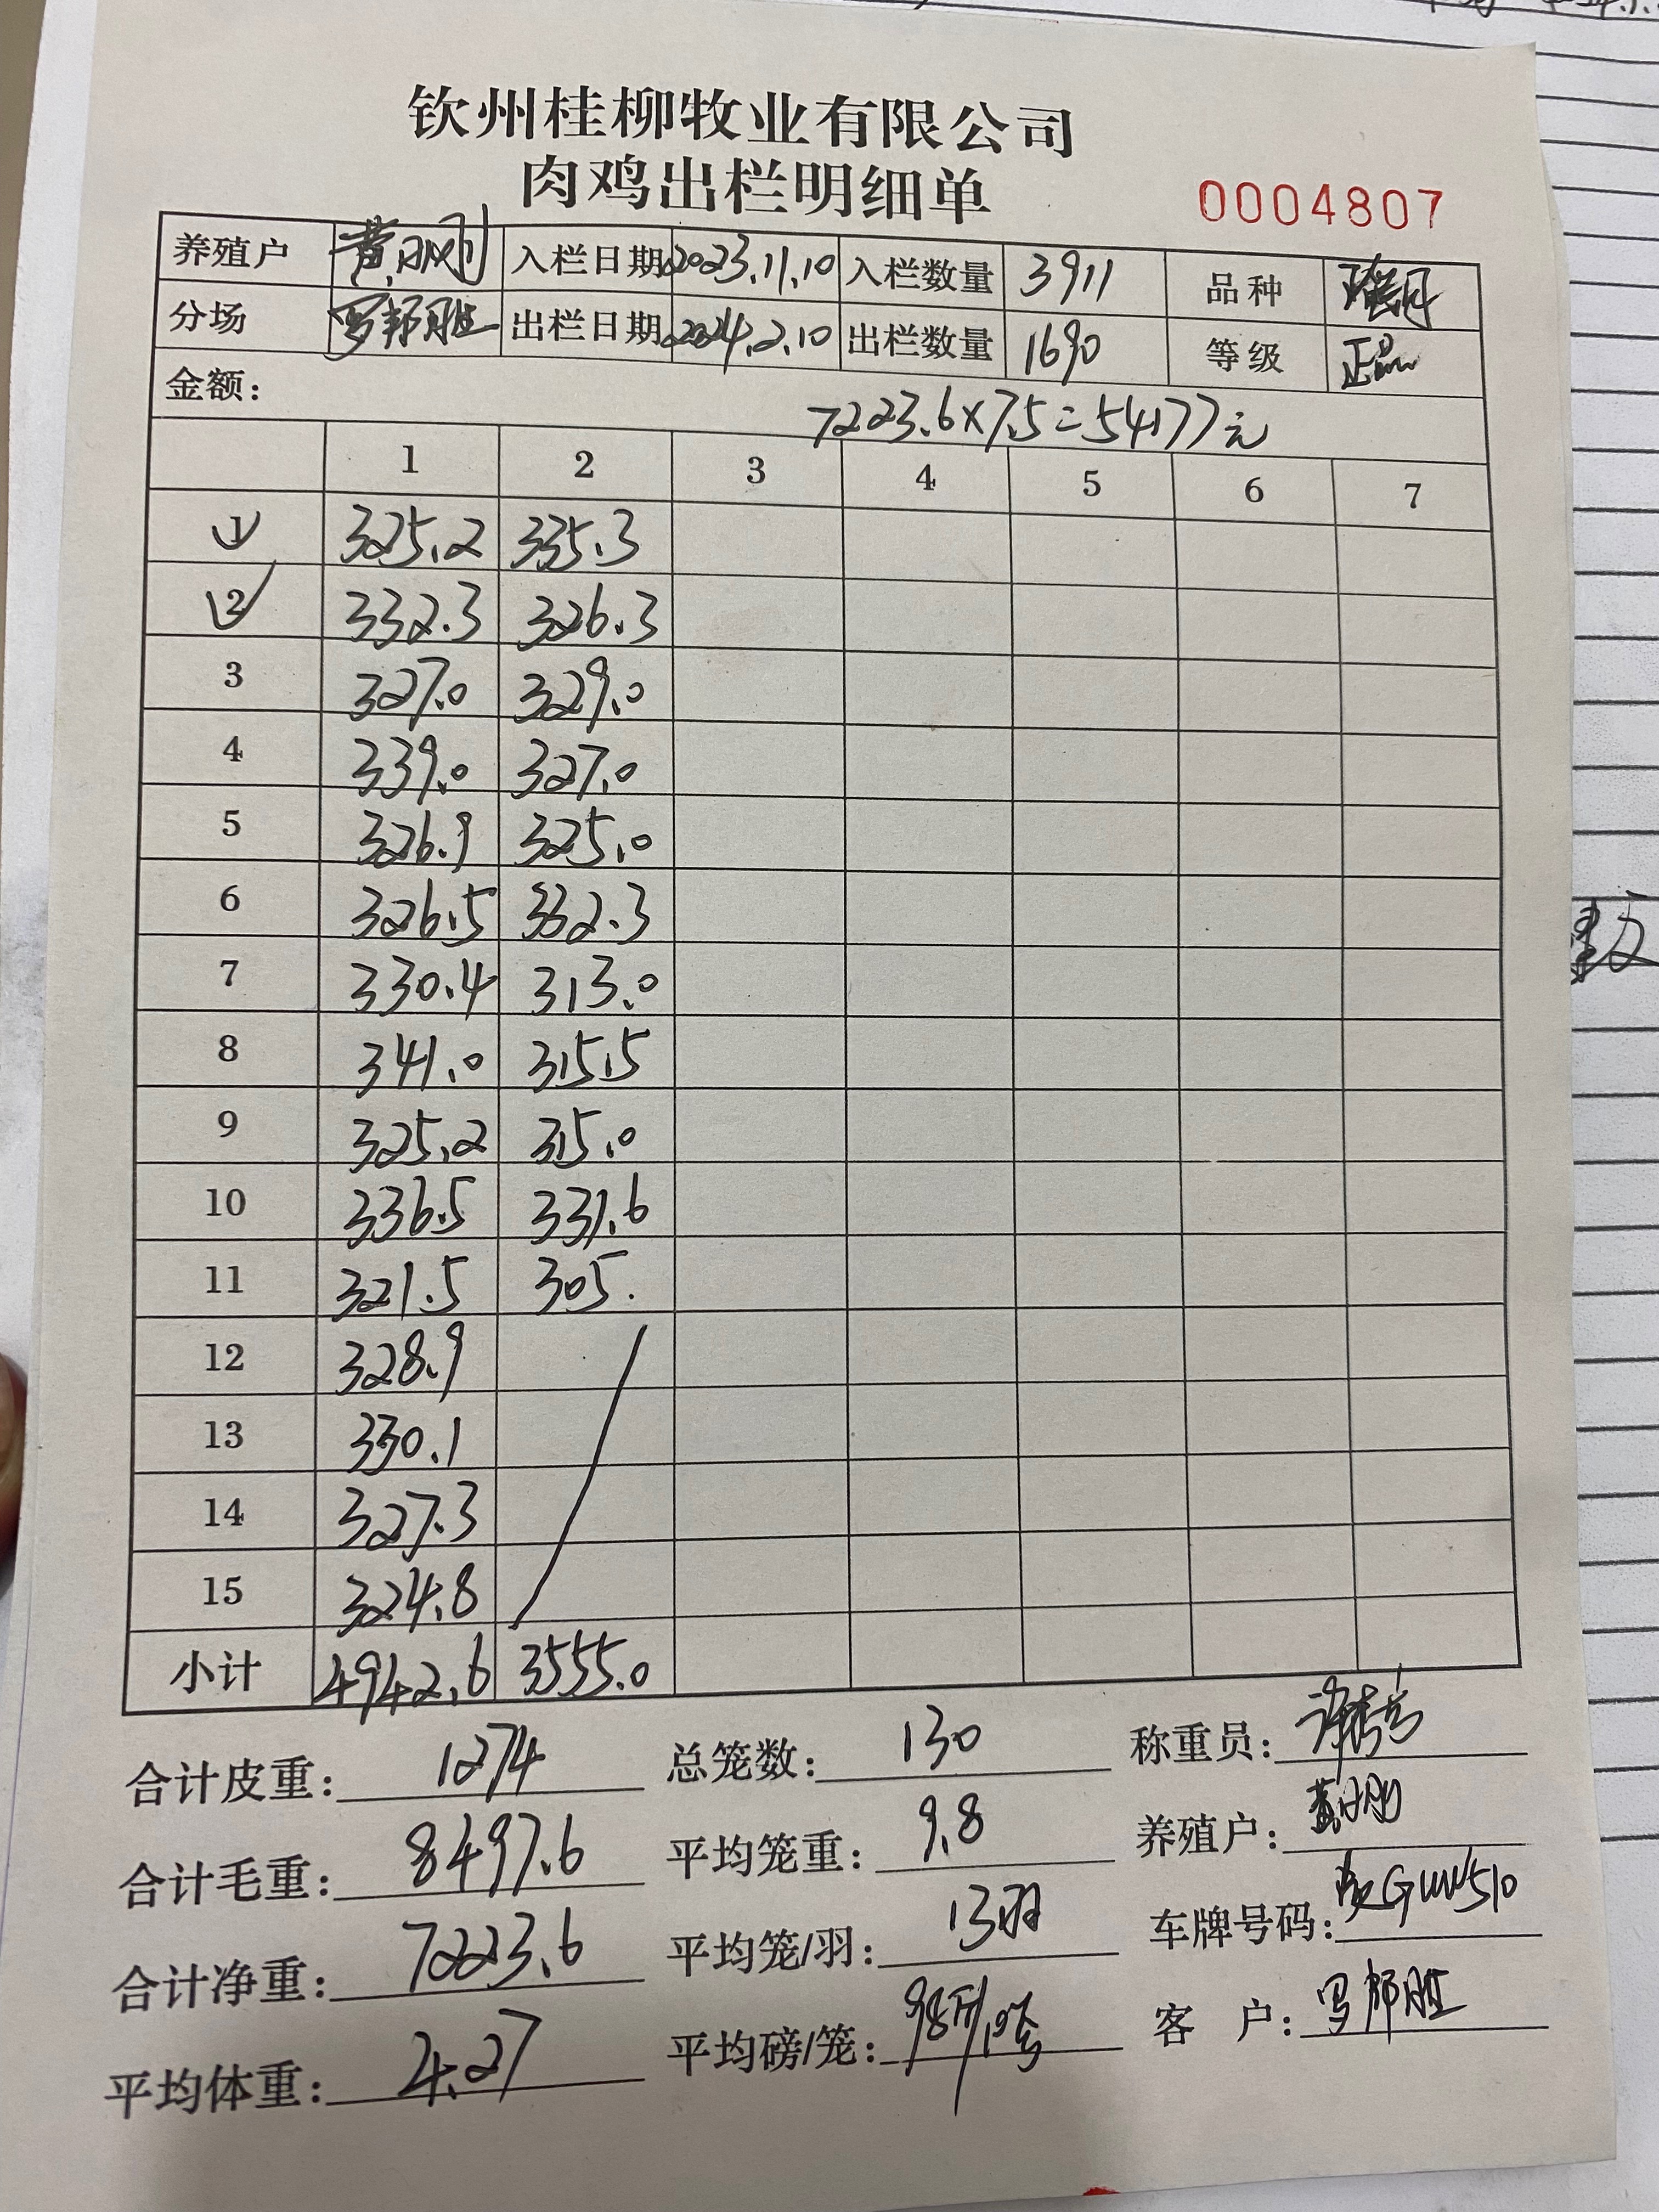 钦州桂柳牧业有限公司
肉鸡出栏明细单 0004807
养殖户 入栏日期 2023.11.10 入栏数量 3911 品种
分场 罗邦胜 出栏日期 2024.2.10 出栏数量 1690 等级 正品
金额: 7223.6×7.5=54177元
1 2 3 4 5 6 7
1 325.2 335.3
2 332.3 326.3
3 327.0 329.0
4 339.0 327.0
5 326.9 325.0
6 326.5 332.3
7 330.4 313.0
8 341.0 315.5
9 325.2 315.0
10 336.5 331.6
11 321.5 305.
12 328.9
13 330.1
14 327.3
15 324.8
小计 4942.6 3555.0
合计皮重: 1274 总笼数: 130 称重员:
合计毛重: 8497.6 平均笼重: 9.8 养殖户:
合计净重: 7223.6 平均笼/羽: 13羽 车牌号码:
平均体重: 4.27 平均磅/笼: 客 户: 罗邦胜